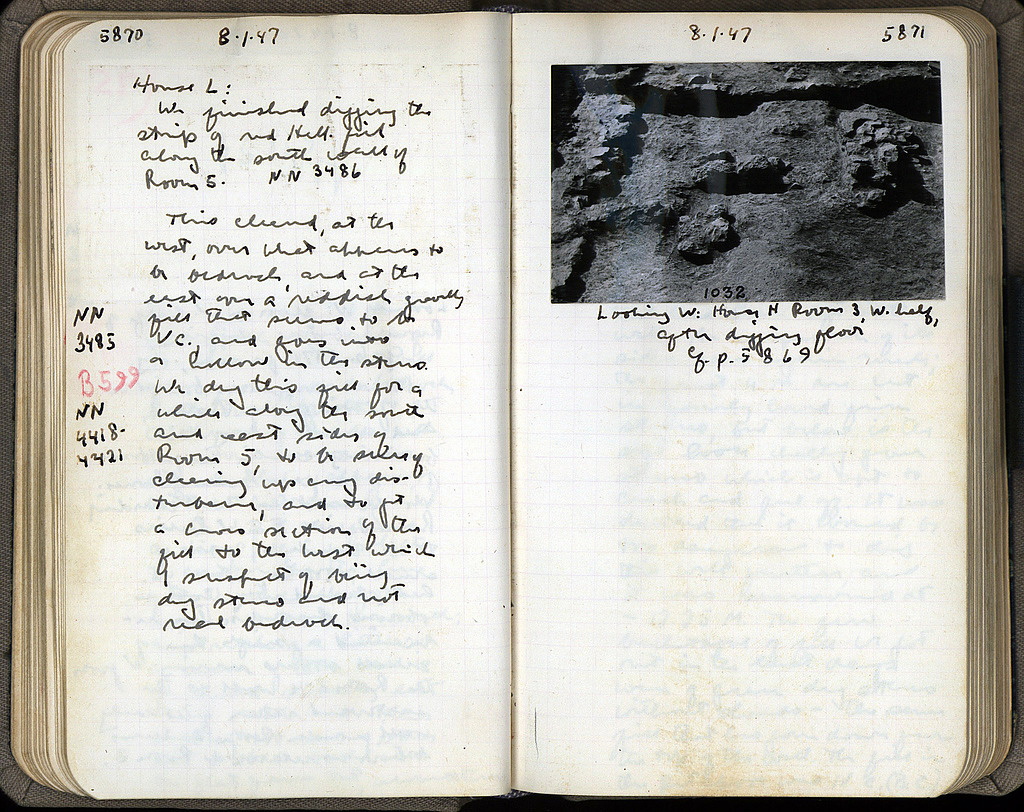 5870 8·1·47
House L:
We finished digging the
strip of red Hell. fill
along the south wall of
Room 5. NN 3486
This cleared, at the
west, over what appears to
be bedrock, and at the
east over a reddish gravelly
NN
fill that seems to be
3485
V C., and goes into
a hollow in the stereo.
B599
We dig this fill for a
NN
while along the south
4418-
and east sides of
4421
Room 5, to be
clearing up any dis-
turbance, and to get
a cross section of the
fill to the west which
I suspect of being
dug stereo and not
real bedrock.
8·1·47 5871
1032
Looking W: House H Room 3, W. half,
after digging floor
cf. p. 5869